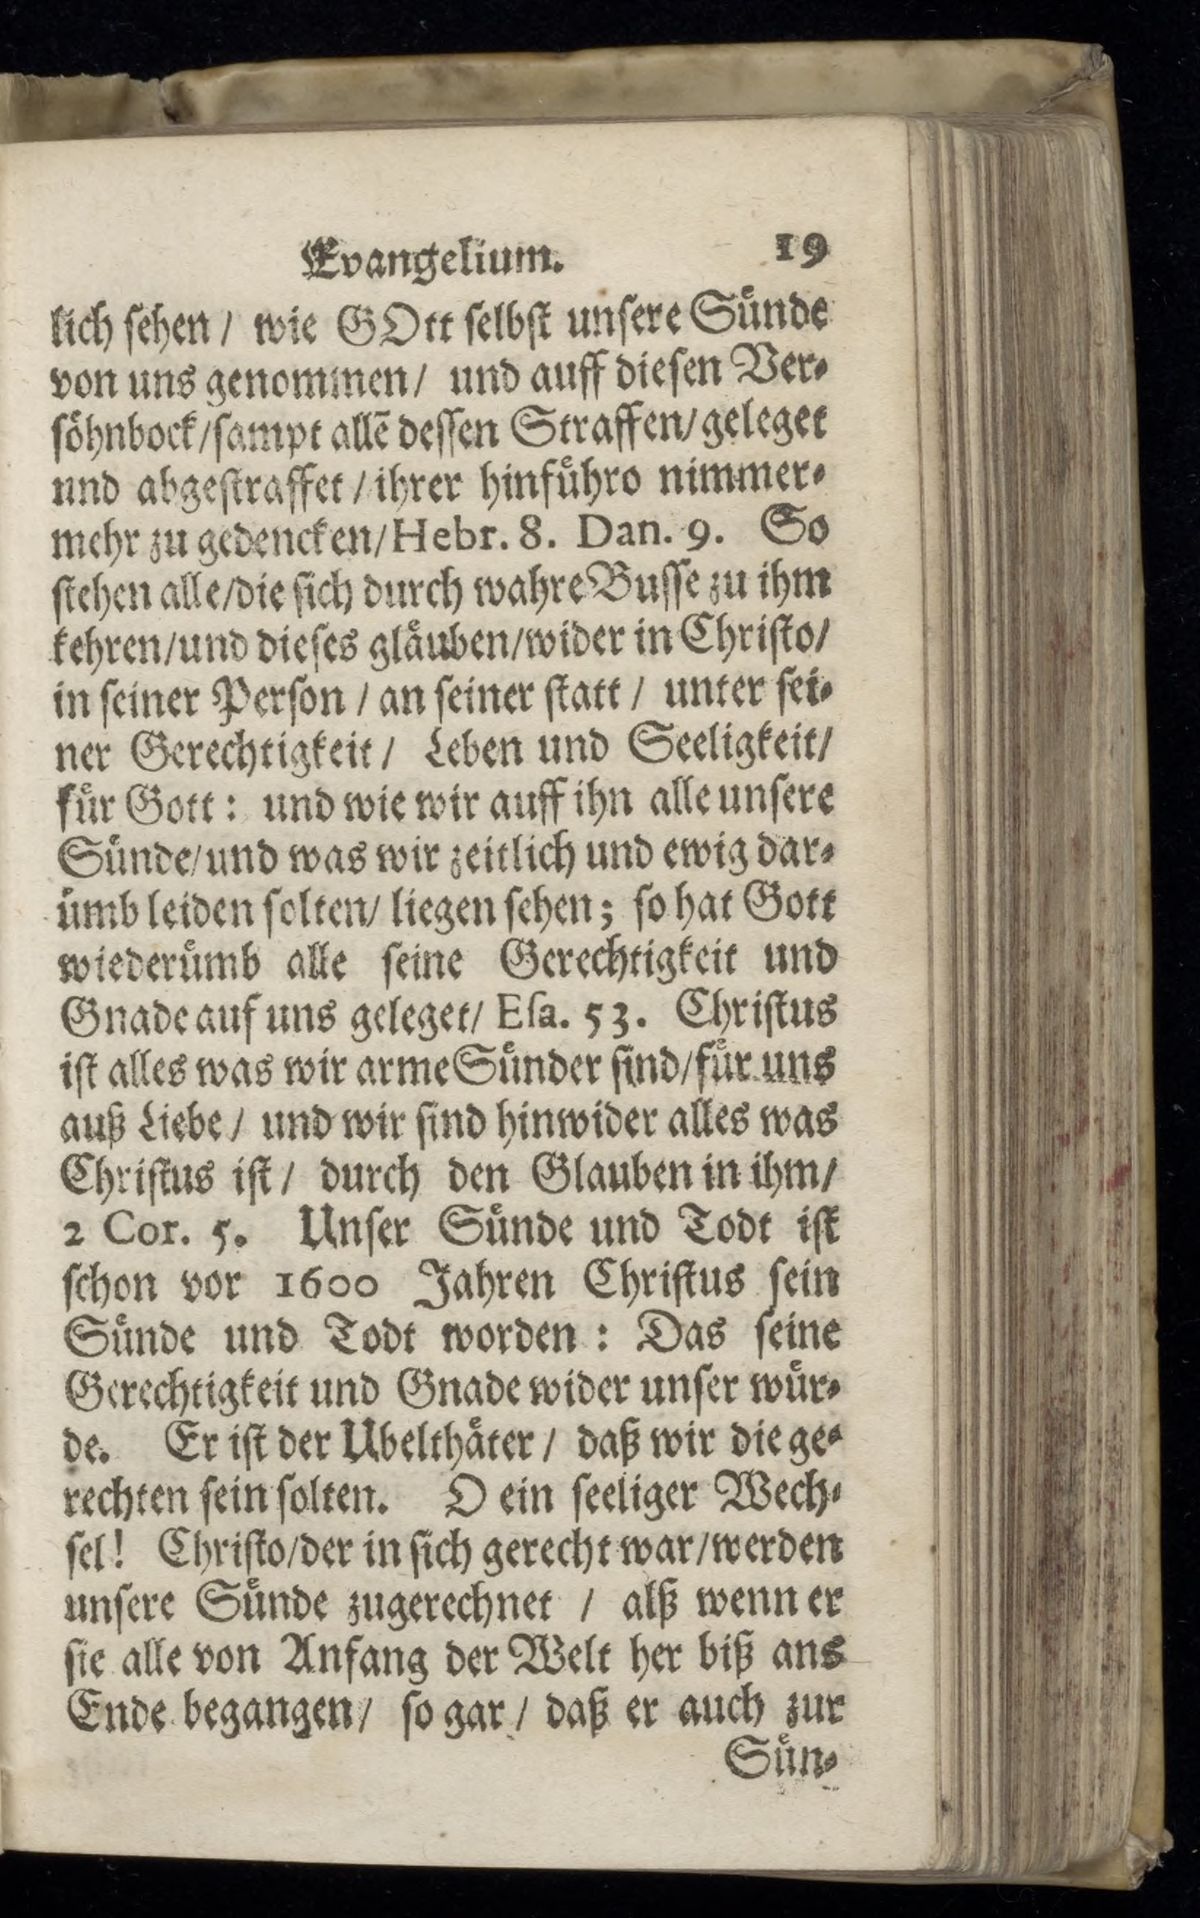 Evangelium. 19
lich sehen / wie GOtt selbst unsere Sünde
von uns genommen / und auff diesen Ver-
söhnbock / sampt allē dessen Straffen / geleget
und abgestraffet / ihrer hinführo nimmer-
mehr zu gedencken / Hebr. 8. Dan. 9. So
stehen alle / die sich durch wahre Busse zu ihm
kehren / und dieses gläuben / wider in Christo /
in seiner Person / an seiner statt / unter sei-
ner Gerechtigkeit / Leben und Seeligkeit /
für Gott : und wie wir auff ihn alle unsere
Sünde / und was wir zeitlich und ewig dar-
ümb leiden solten / liegen sehen ; so hat Gott
wiederümb alle seine Gerechtigkeit und
Gnade auf uns geleget / Esa. 53. Christus
ist alles was wir arme Sünder sind / für uns
auß Liebe / und wir sind hinwider alles was
Christus ist / durch den Glauben in ihm /
2 Cor. 5. Unser Sünde und Todt ist
schon vor 1600 Jahren Christus sein
Sünde und Todt worden : Das seine
Gerechtigkeit und Gnade wider unser wür-
de. Er ist der Ubelthäter / daß wir die ge-
rechten sein solten. O ein seeliger Wech-
sel ! Christo / der in sich gerecht war / werden
unsere Sünde zugerechnet / alß wenn er
sie alle von Anfang der Welt her biß ans
Ende begangen / so gar / daß er auch zur
Sün-